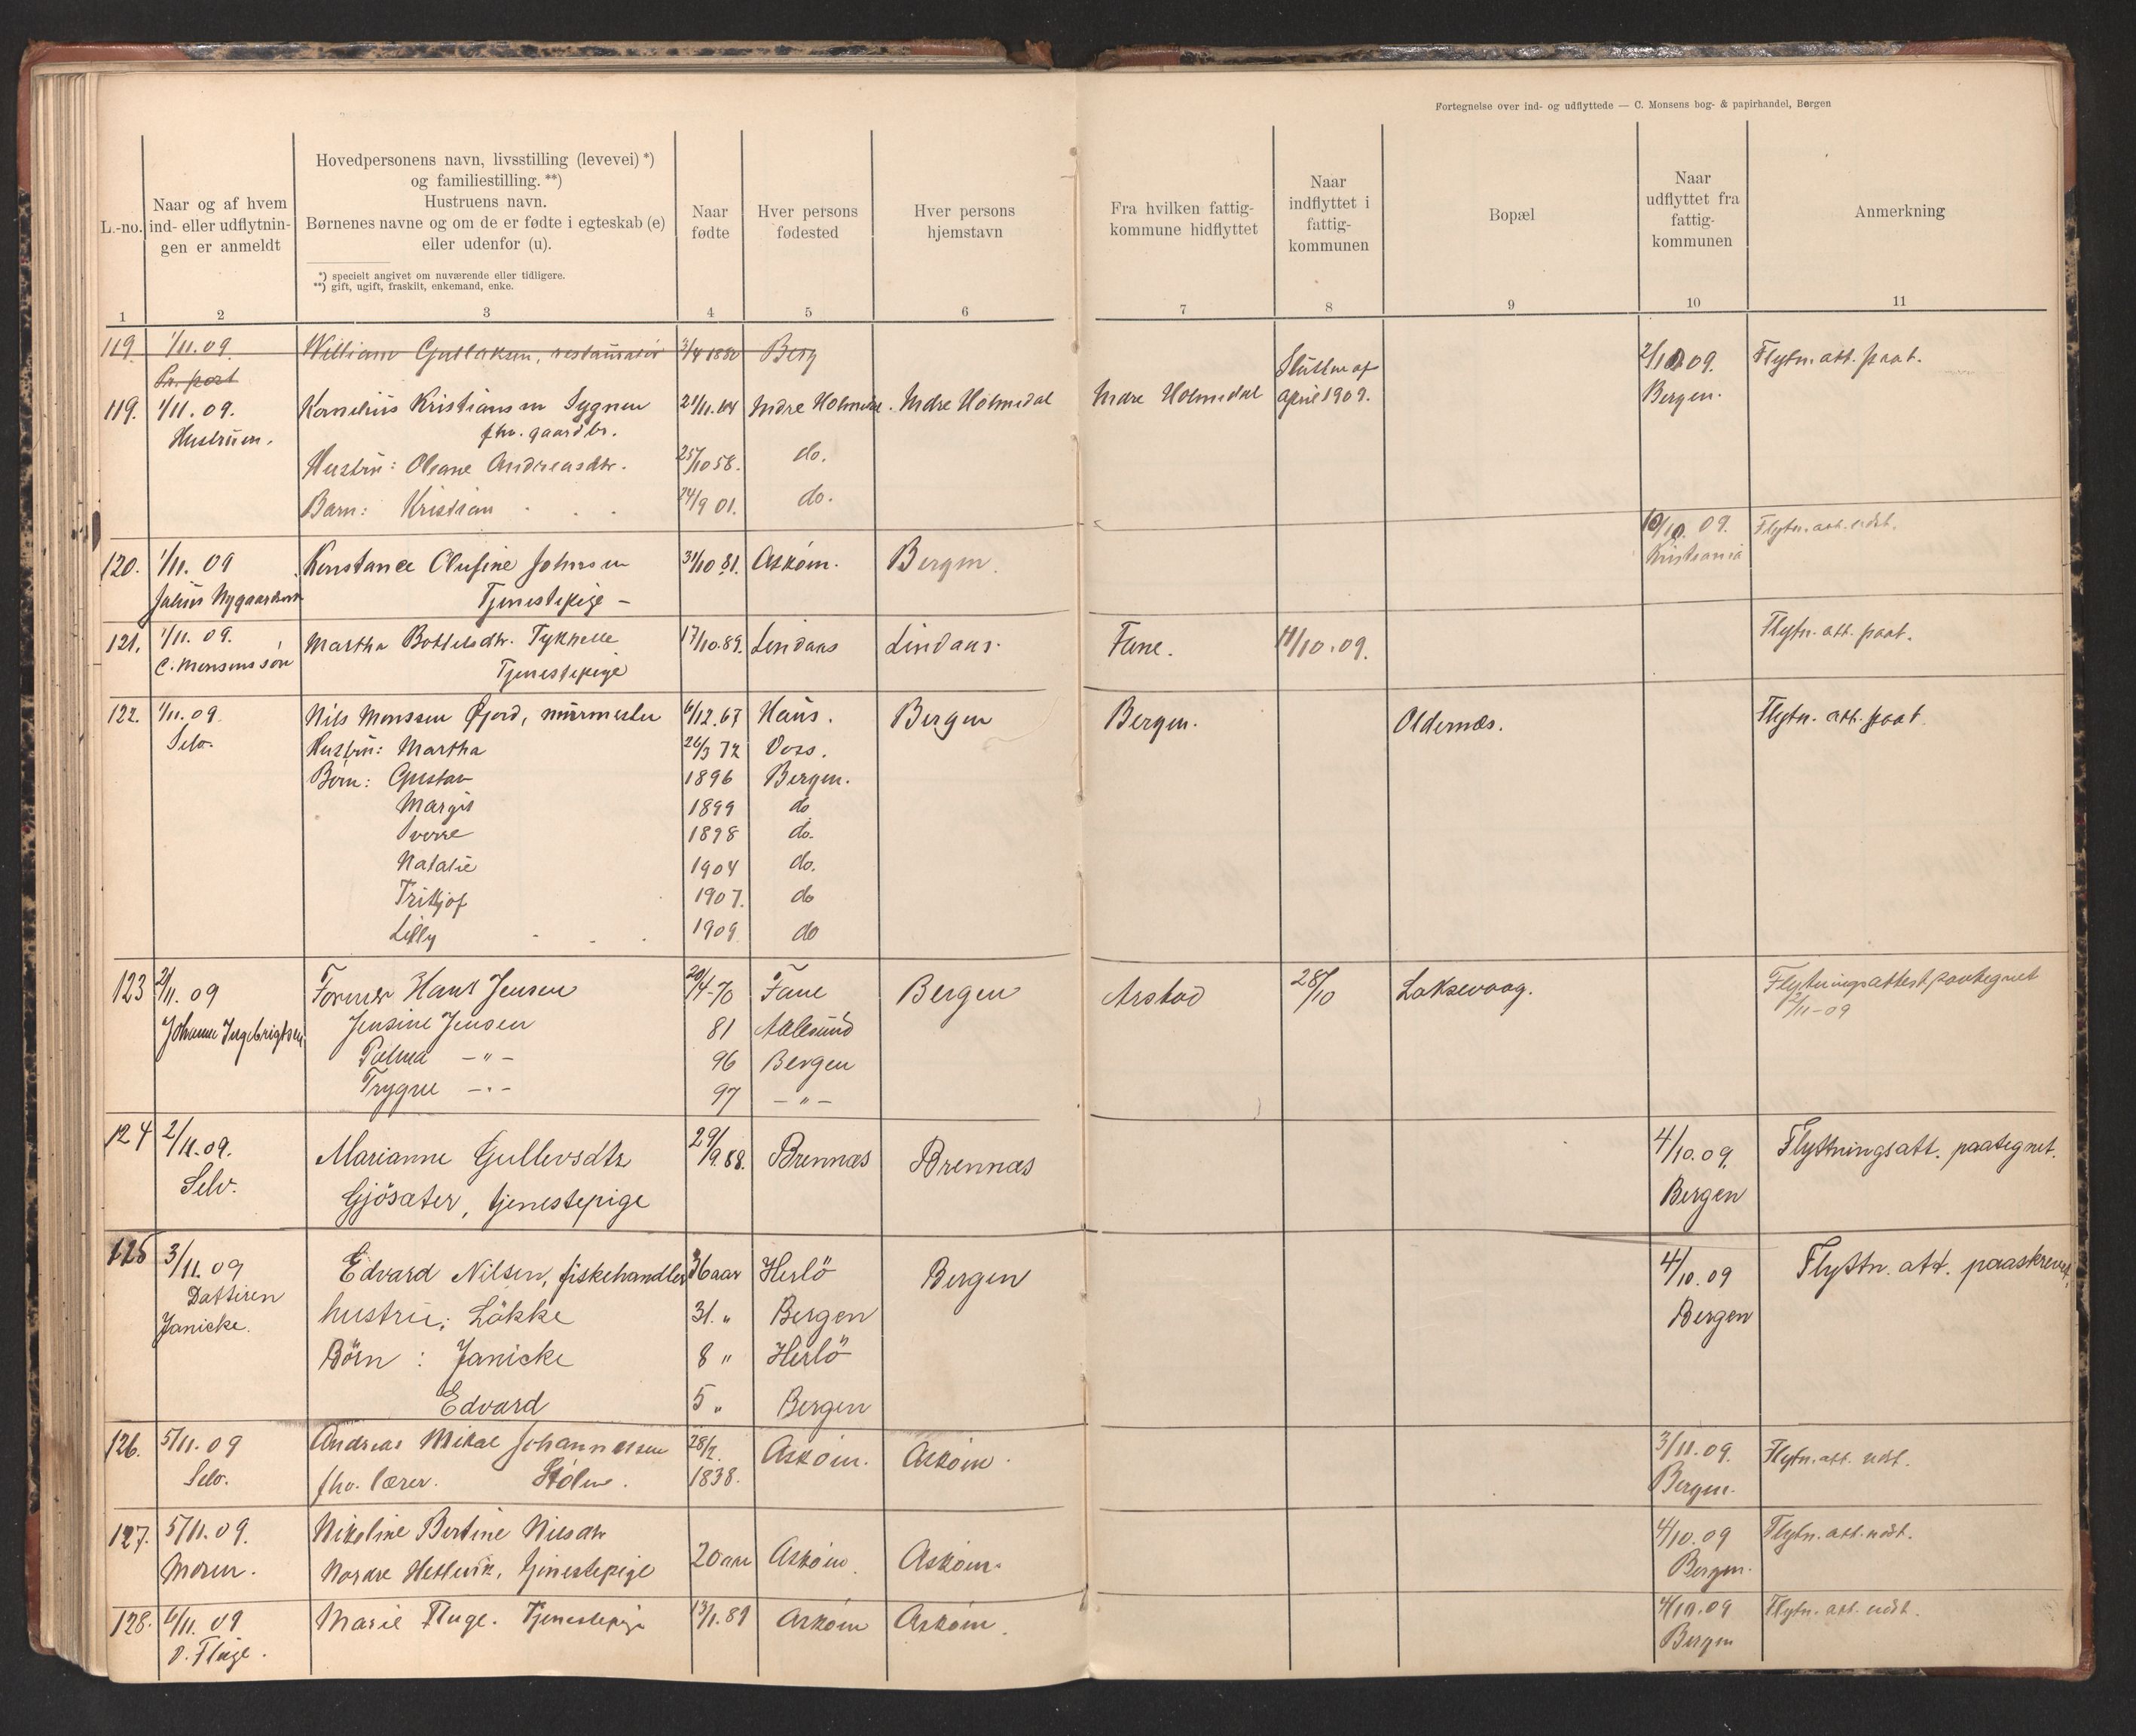 Fortegnelse over ind- og udflyttede — C. Monsens bog- & papirhandel, Bergen
L.-no.
Naar og af hvem
ind- eller udflytnin-
gen er anmeldt
Hovedpersonens navn, livsstilling (levevei) *)
og familiestilling. **)
Hustruens navn.
Børnenes navne og om de er fødte i egteskab (e)
eller udenfor (u).
*) specielt angivet om nuværende eller tidligere.
**) gift, ugift, fraskilt, enkemand, enke.
Naar
fødte
Hver persons
fødested
Hver persons
hjemstavn
Fra hvilken fattig-
kommune hidflyttet
Naar
indflyttet i
fattig-
kommunen
Bopæl
Naar
udflyttet fra
fattig-
kommunen
Anmerkning
1 2 3 4 5 6 7 8 9 10 11
119. 1/11.09. William Gullaksen, restauratør 3/4 1880 Berg 2/10 09. Flytn. att. paat.
Pr. port Bergen.
119. 1/11.09. Kornelius Kristiansen Sygnen 21/11.64 Indre Holmedal. Indre Holmedal Indre Holmedal Slutten af april 1909.
Hustruen. fhv. gaardbr.
Hustru: Oleane Andreasdtr. 25/10 58. do.
Barn: Kristian 24/9 01. do.
120. 1/11. 09 Konstance Olufine Johnsen 31/10 81. Askøen. Bergen. 10/10. 09. Flytn. att. udst.
Julius Nygaardsvik Tjenestepige – Kristiania
121. 1/11. 09. Martha Bottelsdtr. Tykhelle 17/10.89. Lindaas Lindaas. Fane. 11/10.09. Flytn. att. paat.
C. Monsens søn Tjenestepige
122. 1/11.09. Nils Monssen Gjerd, murmester 6/12.67 Haus. Bergen Bergen. Oldernæs. Flytn. att. paat.
Selv. Hustru: Martha 26/3 72 Voss.
Børn: Gustav 1896 Bergen.
Margit 1899 do
Sverre 1898 do.
Natalie 1904 do.
Fritjof 1907. do
Lilly 1909 do
123 2/11. 09 Former Hans Jensen 20/4-70 Fane Bergen Arstad 28/10 Laksevaag. Flytningsattest paategnet
Johanne Ingebrigtsen Jensine Jensen 81 Aalesund 2/11-09
Palma –"– 96 Bergen
Trygve –"– 97 –"–
124 2/11.09. Marianne Gullevsdtr 29/9.88. Brennæs Brennæs 4/10.09. Flyttningsatt. paategnet.
Selv. Gjösæter, tjenestepige Bergen
125 3/11.09 Edvard Nilsen, fiskehandler 36 aar Herlö Bergen 4/10.09 Flyttn. att. paaskrevet.
Datteren hustru: Lökke 31. " Bergen Bergen
Janicke. Börn : Janicke 8 " Herlö
Edvard 5 " Bergen
126. 5/11.09 Andreas Mikal Johannessen 28/2. Askøen. Askøen. 3/11.09. Flytn. att. udst.
Selv. fhv. lærer. Stölen. 1838. Bergen.
127. 5/11.09. Nikoline Bertine Nilsdtr 4/10.09 Flytn. att. udst.
Moren. Nordre Hetlevik, tjenestepige 20 aar Askøen. Askøen. Bergen.
128. 6/11. 09 Marie Fluge. Tjenestepige 13/1.89 Askøen Askøen. 4/10.09 Flytn. att. udst.
O. Fluge. Bergen